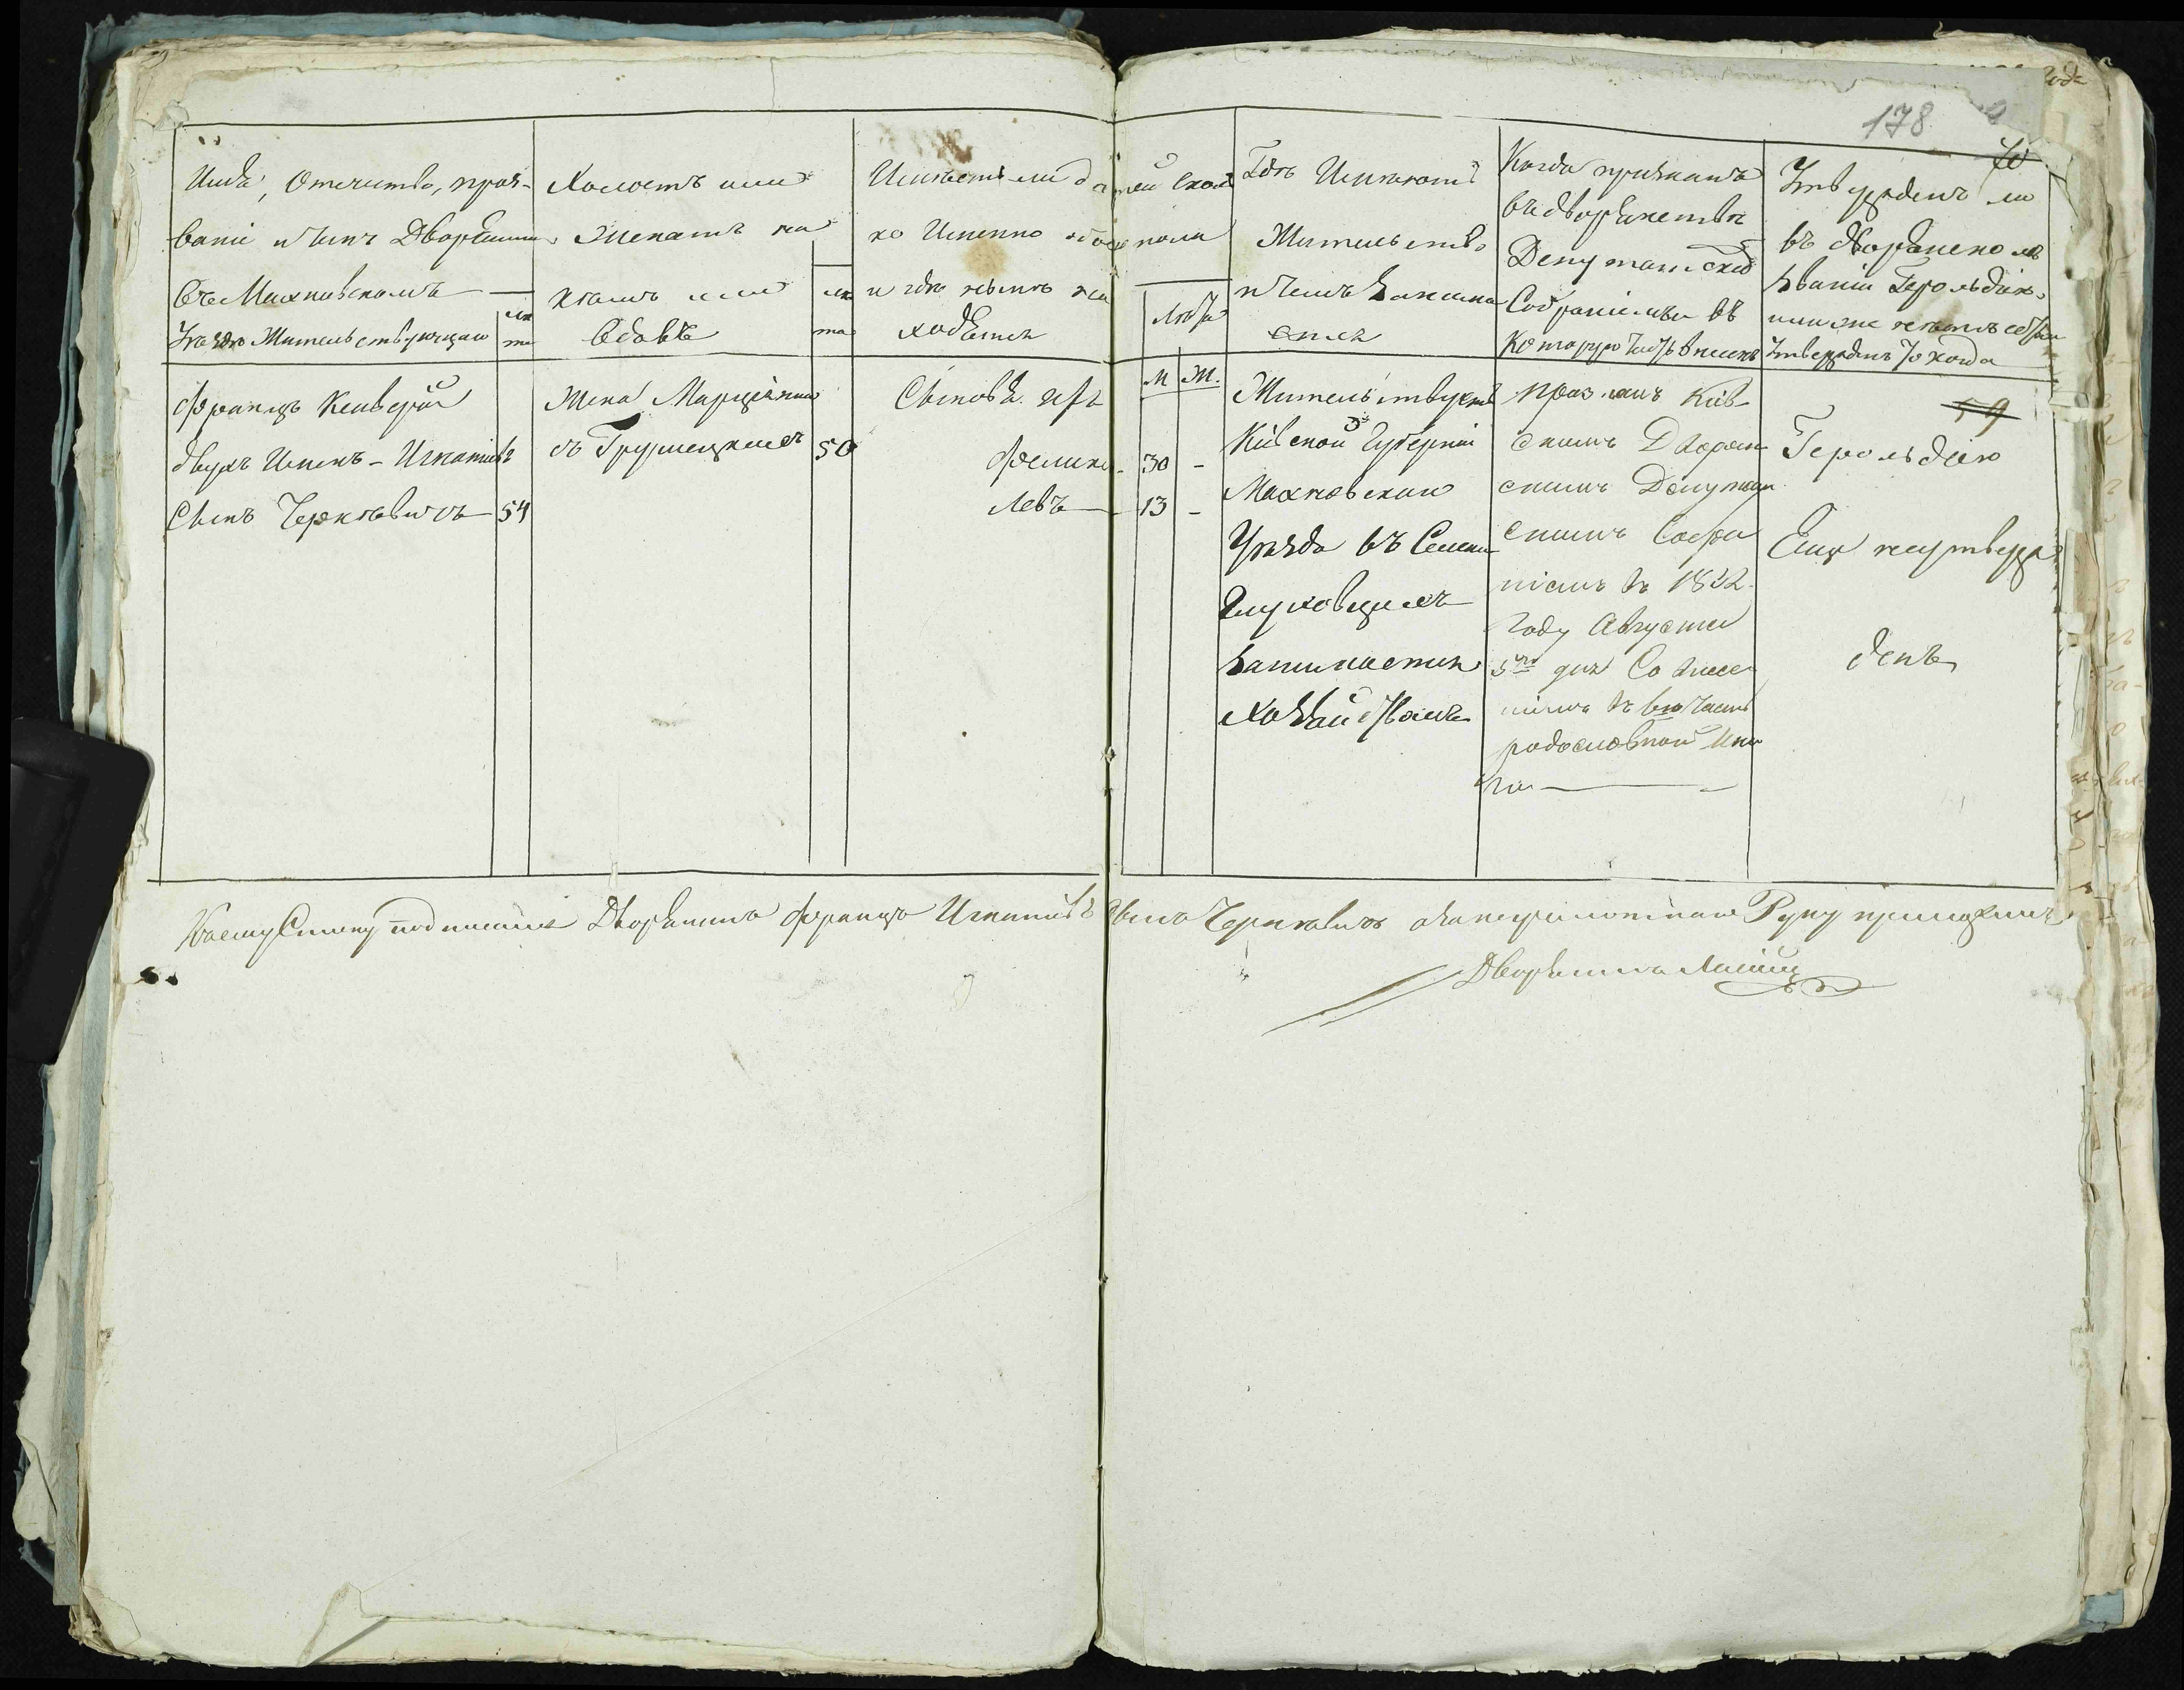 178
70
Имя, Отечество, прозъ-
ваніе и Чинъ Дворянина
въ Махновскомъ
Уѣздѣ Жительствующаго
лѣ
та
Холостъ или
Женатъ на
комъ или
вдовъ
лѣ
та
Имѣетъ ли дѣтей сколь
ко Именно обоего пола
и гдѣ нынѣ на
ходятся
Лѣта
М Ж.
Гдѣ Имѣютъ
Жительство
и Чемъ Занима
ется
Когда признанъ
въ дворянствѣ
Депутатскимъ
Собраніемъ и въ
которую часть внесенъ
Утвержденъ ли
въ дворянскомъ
званіи Герольдіею
или же нетъ
Утвержденъ то когда
59
Францъ Ксаверій
двухъ Именъ - Игнатіевъ
Сынъ Чернявичъ 54
Жена Марціанна
съ Грумецкихъ 50
Сыновья ихъ
Феликсъ - 30 -
Левъ 13 -
Жительствуетъ
Кіевской Губерніи
Махновскаго
Уѣзда въ Селени
Глуховцахъ
занимается
хозяйствомъ
признанъ Кіев
скимъ Дворян
скимъ Депутат
скимъ Собра
ніемъ въ 1832
году Августа
5го дня Со внесе
ніемъ въ 1ю Часть
родословной Кни
ги
Герольдіею
Еще неутверж
денъ
К сему Списку подписался Дворянинъ Францъ Игнатіевъ Сынъ а за неграмотнаго Руку приложилъ
Дворянинъ